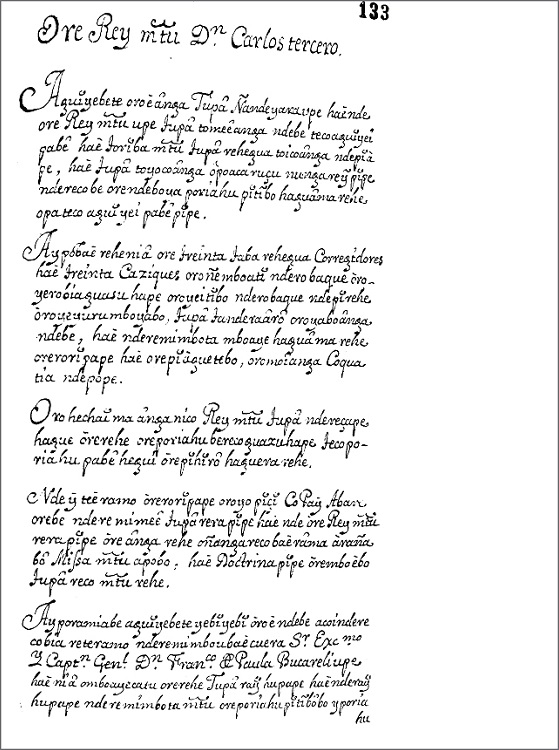 133
Ore Rey m̃tu Dⁿ Carlos tercero.
Aguĭyebete oroè ânga Tupâ Ñandeyara upe haè nde
ore Rey m̃tu upe Tupâ tomeêanga ndebe tecoaguĭyei
pabê haè toriba m̃tu Tupâ rehegua toicoânga ndepĭà
pe, haè Tupâ toyocoânga
ndereco be orendeboya poriahu pĭtĭbo haguâma rehe
opa teco aguĭyei pabê pĭpe.
rehe niâ ore treinta taba rehegua Corregidores
haè treinta Caziques oroñemboatĭ nderobaque òro-
yerobia guasu hape oroyeitĭbo nderobaque ndepĭ rehe
òroyeyurumboyabo, Tupâ oroyaboânga
ndebe, haè nderemimbota mboaye haguâma rehe
orerorĭpape haè orepĭàguetebo, oromoîanga Coqua
tia ndepòpe.
Oro hechaĭma ânga nico Rey m̃tu Tupâ ndereçape
hague òrerehe oreporiahubereco guazu hape tecopo-
riahu pabê hegui òrepĭhĭrô haguera rehe.
Nde ramo òrerorĭpape oroyo Co Paỹ Abare
orebe nderemimeê Tupâ rera pĭpe haè nde òre Rey m̃tu
rera pĭpe òre ânga rehe oñangarecobaèrâma
bô Missa m̃tu apobo, haè Doctrina pĭpe òremboèbo
Tupâ reco m̃tu rehe.
Ayporamiabe aguĭyebete yebĭyebĭ òroè ndebe acoi ndere
cobia reteramo nderemimboubaècuera Sʳ. Excᵐᵒ
Y Captⁿ. Genˡ. Dⁿ Franᶜᵒ Paula Bucareli upe
haè niâ omboayecatu orerehe Tupâ raỹhupape haè nderaỹ
hupape nderemimbota m̃tu oreporiahu pĭtĭbôbo yporia
hu